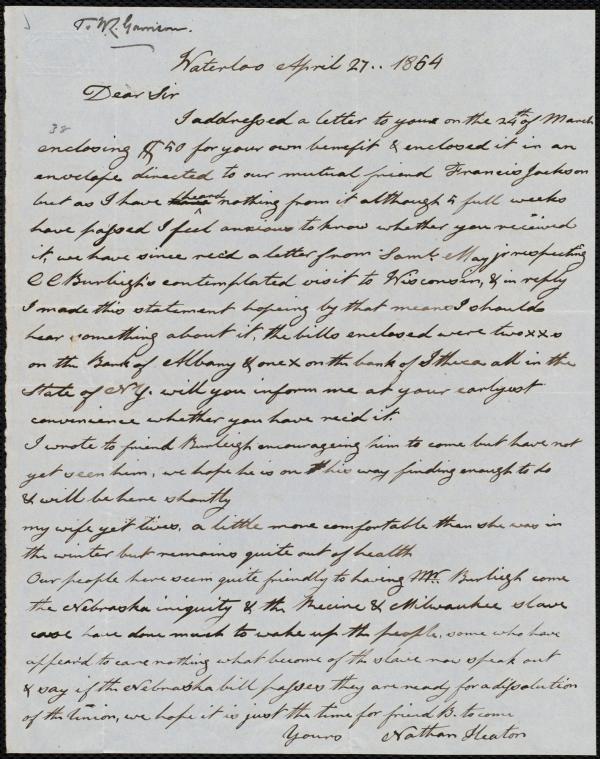 To W. L. Garrison.
Waterloo April 27.. 1854
Dear Sir
I addressed a letter to you on the 24th of March
38
enclosing $50 for your own benefit & enclosed it in an
envelope directed to our mutual friend Francis Jackson
but as I have heard nothing from it although 4 full weeks
have passed I feel anxious to know whether you received
it, we have since rec'd a letter from Saml. May jr respecting
C C Burleigh's contemplated visit to Wisconsin, & in reply
I made this statement hopeing by that means I should
hear something about it, the bills enclosed were two xxs
on the Bank of Albany & one x on the bank of Itheca all in the
State of N.Y. will you inform me at your earlyest
convenience whether you have rec'd it.
I wrote to friend Burleigh encourageing him to come but have not
yet seen him, we hope he is on his way finding enough to do
& will be here shortly
my wife yet lives, a little more comfortable than she was in
the winter but remains quite out of health
Our people here seem quite friendly to having Mr. Burleigh come
the Nebraska iniquity & the Recine & Milwaukee slave
case have done much to wake up the people, some who have
appeard to care nothing what become of the slave now speak out
& say if the Nebraska bill passes they are ready for a dissolution
of the Union, we hope it is just the time for friend B. to come
Yours Nathan Heaton